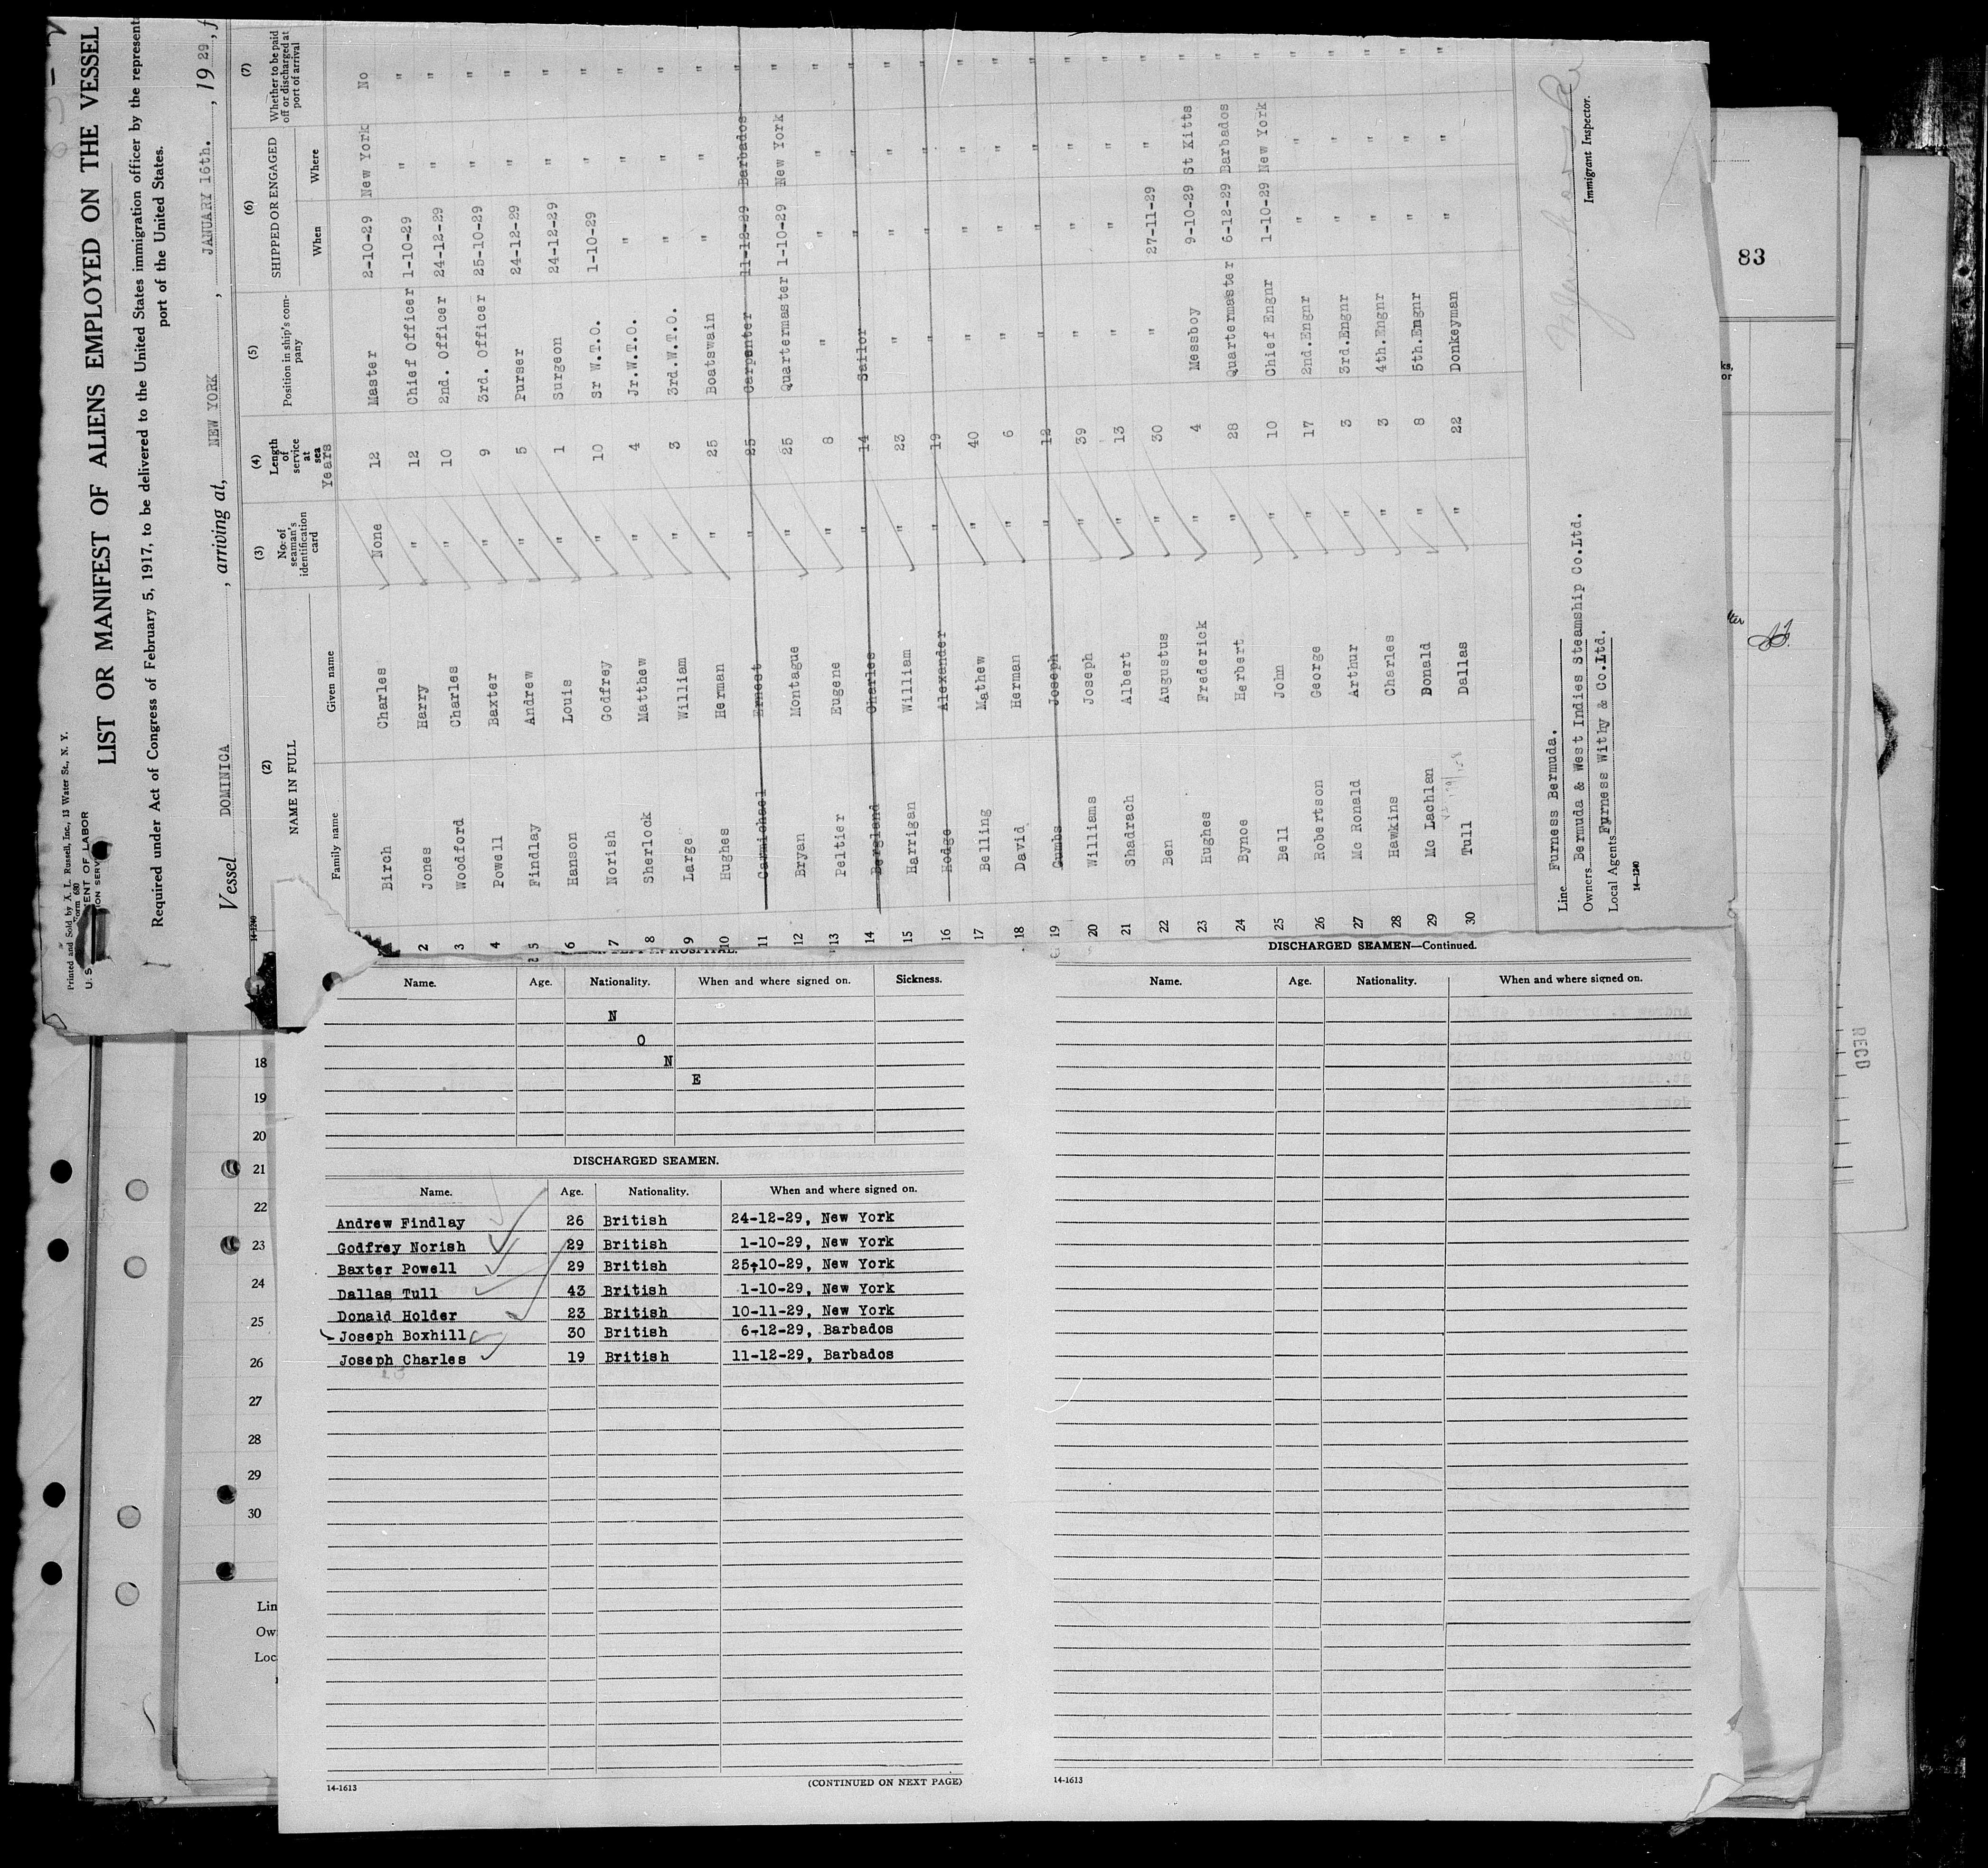 Printed and Sold by A. L. Russell, Inc., 13 Water St., N. Y.
Form 680
LIST OR MANIFEST OF ALIENS EMPLOYED ON THE VESSEL
Required under Act of Congress of February 5, 1917, to be delivered to the United States immigration officer by the represent
port of the United States.
Vessel DOMINICA, arriving at, NEW YORK, JANUARY 16th., 1929, f
14-1240
(2) (3) (4) (5) (6) (7)
NAME IN FULL No. of seaman's identification card Length of service at sea Years Position in ship's company SHIPPED OR ENGAGED Whether to be paid off or discharged at port of arrival
Family name Given name When Where
Birch Charles None 12 Master 2-10-29 New York No
2 Jones Harry " 12 Chief Officer 1-10-29 " "
3 Woodford Charles " 10 2nd. Officer 24-12-29 " "
4 Powell Baxter " 9 3rd. Officer 25-10-29 " "
5 Findlay Andrew " 5 Purser 24-12-29 " "
6 Hanson Louis " 1 Surgeon 24-12-29 " "
7 Norish Godfrey " 10 Sr W.T.O. 1-10-29 " "
8 Sherlock Matthew " 4 Jr.W.T.O. " " "
9 Large William " 3 3rd.W.T.O. " " "
10 Hughes Herman " 25 Boatswain " " "
11 Carmichael Ernest " 25 Carpenter 11-12-29 Barbados "
12 Bryan Montague " 25 Quartermaster 1-10-29 New York "
13 Peltier Eugene " 8 " " " "
14 Bergland Charles " 14 Sailor " " "
15 Harrigan William " 23 " " " "
16 Hodge Alexander " 19 " " " "
17 Belling Mathew " 40 " " " "
18 David Herman " 6 " " " "
19 Gumbs Joseph " 12 " " " "
20 Williams Joseph " 39 " " " "
21 Shadrach Albert " 13 " " " "
22 Ben Augustus " 30 " 27-11-29 " "
23 Hughes Frederick " 4 Messboy 9-10-29 St Kitts "
24 Bynoe Herbert " 28 Quartermaster 6-12-29 Barbados "
25 Bell John " 10 Chief Engnr 1-10-29 New York "
26 Robertson George " 17 2nd.Engnr " " "
27 Mc Ronald Arthur " 3 3rd.Engnr " " "
28 Hawkins Charles " 3 4th.Engnr " " "
29 Mc Lachlan Donald " 8 5th.Engnr " " "
30 Tull Dallas " 22 Donkeyman " " "
Line Furness Bermuda.
Owners Bermuda & West Indies Steamship Co.Ltd.
Local Agents Furness Withy & Co.Ltd.
Immigrant Inspector.
14-1240
Name. Age. Nationality. When and where signed on. Sickness.
N
O
N
E
DISCHARGED SEAMEN.
Name. Age. Nationality. When and where signed on.
Andrew Findlay 26 British 24-12-29, New York
Godfrey Norish 29 British 1-10-29, New York
Baxter Powell 29 British 25-10-29, New York
Dallas Tull 43 British 1-10-29, New York
Donald Holder 23 British 10-11-29, New York
Joseph Boxhill 30 British 6-12-29, Barbados
Joseph Charles 19 British 11-12-29, Barbados
14-1613 (CONTINUED ON NEXT PAGE)
DISCHARGED SEAMEN—Continued.
Name. Age. Nationality. When and where signed on.
14-1613
18
19
20
21
22
23
24
25
26
27
28
29
30
Lin
Ow
Loc
83
ks,
or
RECD